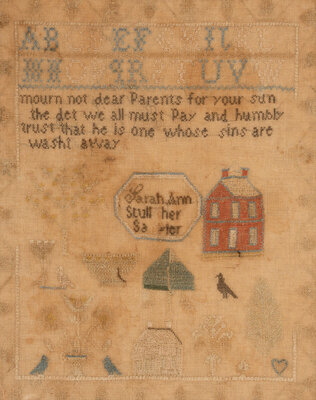 AB EF IJ
MN QR UV
mourn not dear Parents for your sun
the det we all must Pay and humbly
trust that he is one whose sins are
washt away
Sarah Ann
Stull her